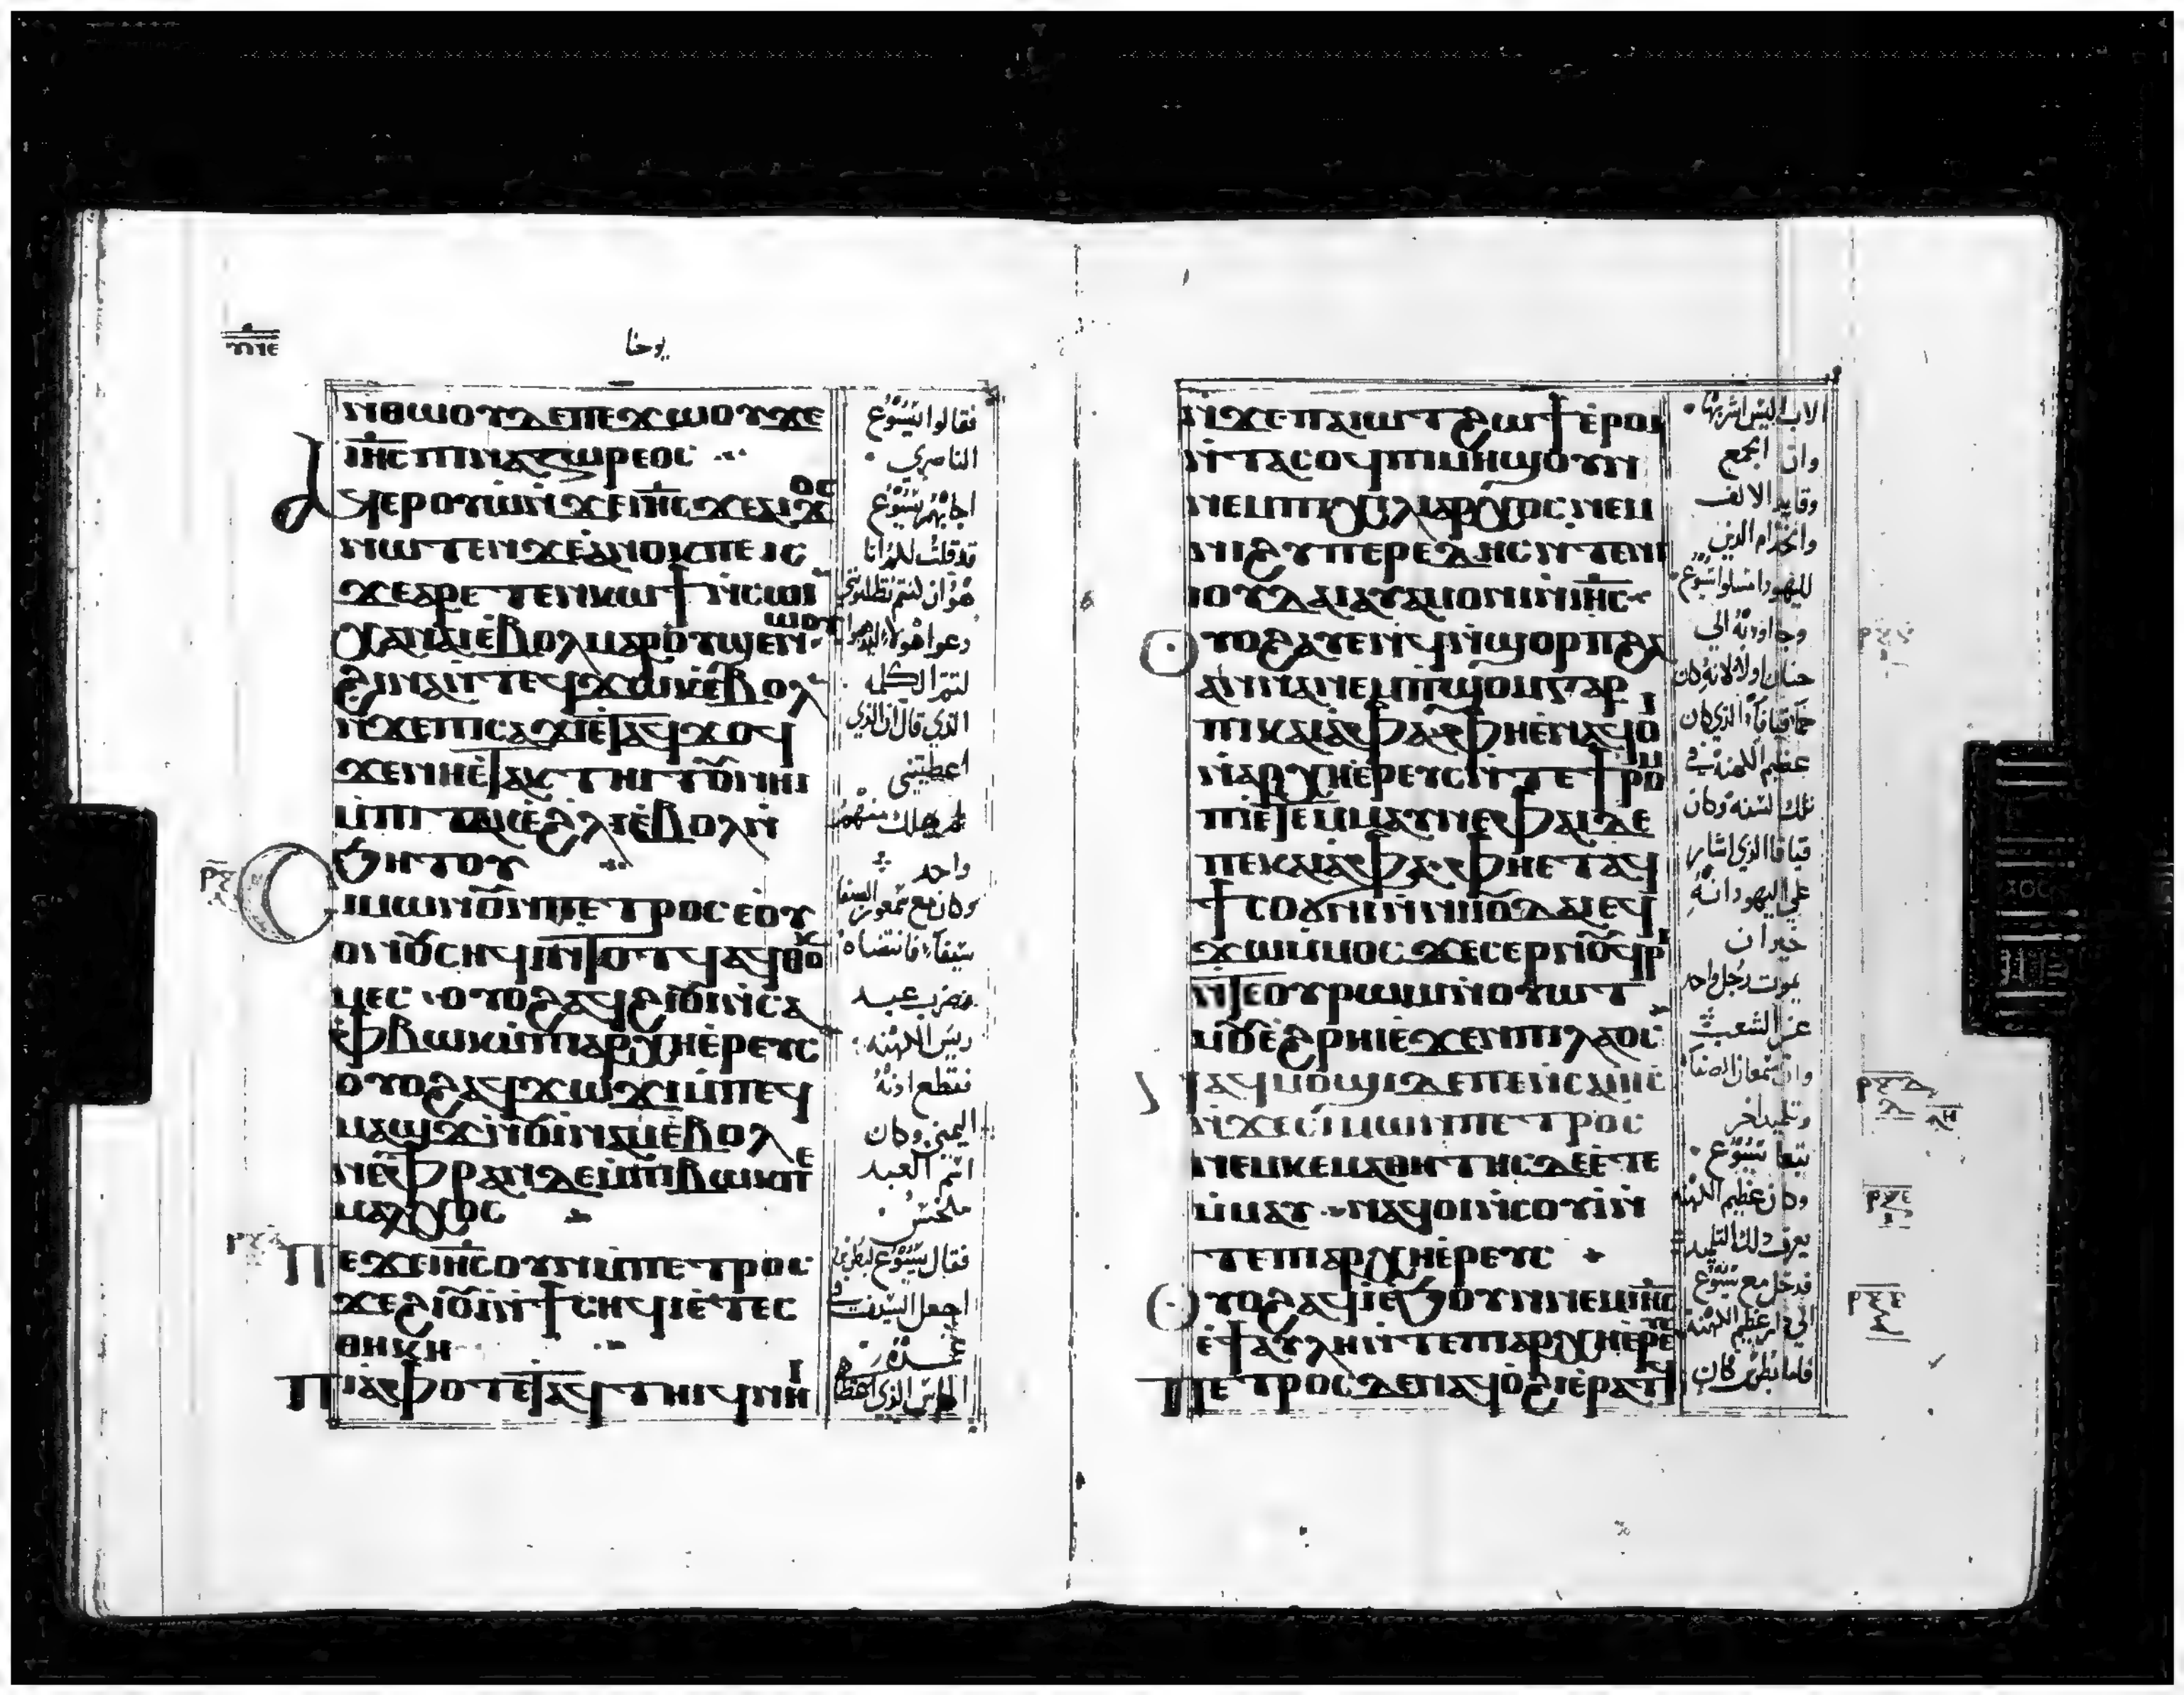 ⲩⲓⲉ
يوحنا
ⲛⲑⲱⲟⲩⲇⲉⲡⲉϫⲱⲟⲩϫⲉ
ⲓⲏⲥⲡⲓⲛⲁⲍⲱⲣⲉⲟⲥ
ⲁϥⲉⲣⲟⲩⲱⲛϫⲉⲓⲏⲥϫⲉⲁⲓϫⲟⲥ
ⲛⲱⲧⲉⲛϫⲉⲁⲛⲟⲕⲡⲉⲓⲥ
ϫⲉⲁⲣⲉⲧⲉⲛⲕⲱϯⲛⲥⲱⲓ
ⲭⲁⲛⲁⲓⲉⲃⲟⲗⲙⲁⲣⲟⲩϣⲉⲛⲱⲟⲩ
ϩⲓⲛⲁⲛⲧⲉϥϫⲱⲕⲉⲃⲟⲗ
ⲛϫⲉⲡⲓⲥⲁϫⲓⲉⲧⲁϥϫⲟϥ
ϫⲉⲛⲏⲉⲧⲁⲕⲧⲏⲓⲧⲟⲩⲛⲏⲓ
ⲙⲡⲓⲧⲁⲕⲉϩⲗⲓⲉⲃⲟⲗⲛ
ϧⲏⲧⲟⲩ
ⲥⲓⲙⲱⲛⲟⲩⲛⲡⲉⲧⲣⲟⲥⲉⲟⲩ
ⲟⲛⲟⲩⲥⲏϥⲓⲛⲧⲟⲧϥⲁϥⲑⲟⲕ
ⲙⲉⲥⲟⲩⲟϩⲁϥϩⲓⲟⲩⲓⲛⲥⲁ
ⲫⲃⲱⲕⲙⲡⲓⲁⲣⲭⲏⲉⲣⲉⲩⲥ
ⲟⲩⲟϩⲁϥϫⲱϫⲓⲙⲡⲉϥ
ⲙⲁϣϫⲛⲟⲩⲓⲛⲁⲙⲉⲃⲟⲗ
ⲛⲉⲫⲣⲁⲛⲇⲉⲙⲡⲓⲃⲱⲕⲡⲉ
ⲙⲁⲗⲭⲟⲥ
ⲡⲉϫⲉⲓⲏⲥⲟⲩⲛⲙⲡⲉⲧⲣⲟⲥ
ϫⲉϩⲓⲟⲩⲓⲛϯⲥⲏϥⲓⲉⲧⲉⲥ
ⲑⲏⲕⲏ
ⲡⲓⲁⲫⲟⲧⲉⲧⲁϥⲧⲏⲓϥⲛⲏⲓ
فقالوا ليسوع
الناصري
اجابهم يسوع
قد قلت لكم انا
هو ان كنتم تطلبوني
دعوا هولاء يذهبوا
لتتم الكلمه
الذي قال ان الذي
اعطيتني
لم يهلك منهم
واحد
وكان مع سمعون الصفا
سيفا فانتضاه
فضرب عبد
ريس الكهنه
فقطع اذنه
اليمنى وكان
اسم العبد
ملخس
فقال يسوع لبطرس
اجعل السيف في
غمده
الكاس الذي اعطا
ⲛϫⲉⲡⲁⲓⲱⲧϩⲱϯⲉⲣⲟϥ
ⲛⲧⲁⲥⲟϥⲡⲓⲙⲏϣⲟⲩⲛ
ⲛⲉⲙⲡⲓⲭⲓⲗⲓⲁⲣⲭⲟⲥⲛⲉⲙ
ⲛⲓϩⲩⲡⲉⲣⲉⲧⲏⲥⲛⲧⲉⲛⲓ
ⲓⲟⲩⲇⲁⲓⲁⲩⲁⲙⲟⲛⲓⲛⲓⲏⲥ
ⲟⲩⲟϩⲁⲩⲉⲛϥⲛϣⲟⲣⲡϩⲁ
ⲁⲛⲛⲁⲛⲉⲡϣⲟⲙⲅⲁⲣ
ⲡⲓⲕⲁⲓⲁⲫⲁⲫⲏⲉⲛⲁϥⲟⲓ
ⲛⲁⲣⲭⲏⲉⲣⲉⲩⲥⲛⲧⲉϯⲣⲟⲙ
ⲡⲓⲉⲧⲉⲙⲙⲁⲩⲛⲉⲫⲁⲓⲇⲉ
ⲡⲉⲕⲁⲓⲁⲫⲁⲫⲏⲉⲧⲁϥ
ϯⲥⲟϭⲛⲓⲛⲛⲓⲓⲟⲩⲇⲁⲓⲉϥ
ϫⲱⲙⲙⲟⲥϫⲉⲥⲉⲣⲛⲟϥⲣⲓ
ⲛⲧⲉⲟⲩⲣⲱⲙⲓⲛⲟⲩⲱⲧ
ⲙⲟⲩⲉϩⲣⲏⲓⲉϫⲉⲛⲡⲓⲗⲁⲟⲥ
ⲛⲁϥⲙⲟϣⲓⲇⲉⲡⲉⲛⲥⲁⲓⲏⲥ
ⲛϫⲉⲥⲓⲙⲱⲛⲡⲉⲧⲣⲟⲥ
ⲛⲉⲙⲕⲉⲙⲁⲑⲏⲧⲏⲥⲇⲉⲉⲧⲉ
ⲙⲙⲁⲩⲛⲁϥⲟⲓⲛⲥⲟⲩⲓⲛ
ⲧⲉⲡⲓⲁⲣⲭⲏⲉⲣⲉⲩⲥ
ⲟⲩⲟϩⲁϥⲓⲉϧⲟⲩⲛⲛⲉⲙⲓⲏⲥ
ⲉϯⲁⲩⲗⲏⲛⲧⲉⲡⲓⲁⲣⲭⲏⲉⲣⲉⲩⲥ
ⲡⲉⲧⲣⲟⲥⲇⲉⲛⲁϥⲟϩⲓⲉⲣⲁⲧϥ
الاب اليس اشربها
وان الجمع
وقايد الالف
والخدام الذين
لليهود امسكوا يسوع
وجاوا به الى
حنان اولا لانه كان
حما قيافا الذي كان
عظيم الكهنه في
تلك السنه وكان
قيافا الذي اشار
على اليهود انه
خير ان
يموت رجل واحد
عن الشعب
وان سمعان الصفا
وتلميذ اخر
تبعا يسوع
وكان عظيم الكهنه
يعرف ذلك التلميذ
فدخل مع يسوع
الى دار عظيم الكهنه
فاما بطرس فكان